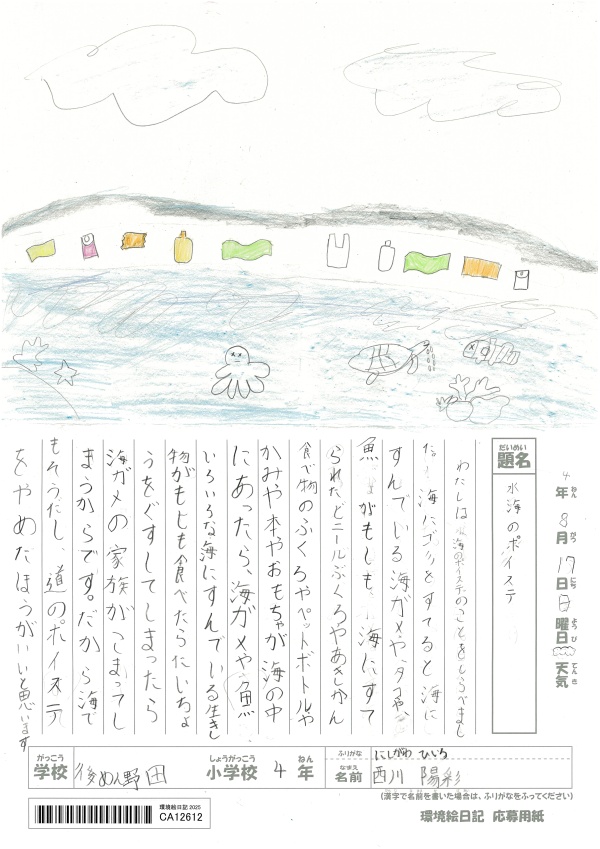 だいめい
題名
水海のポイステ
4年8月17日日曜日
ねん がつ にち ようび
天気
てんき
わたしは水海のポイステのことをしらべまし
た。海にゴミをすてると海に
すんでいる海ガメや、タコや、
魚がもしも、海にすて
られたビニールぶくろやあきかん
食べ物のふくろやペットボトルや
かみや本やおもちゃが海の中
にあったら、海ガメや魚
いろいろな海にすんでいる生きし
物がもしも食べたらにいちょ
うをくずしてしまったら
海ガメの家族がこまってし
まうからです。だから海で
もそうだし、道のポイステ
をやめたほうがいいと思います
がっこう
学校
後めん野田
しょうがっこう
小学校
4
ねん
年
ふりがな
にしがわ ひいろ
なまえ
名前
西川 陽彩
(漢字で名前を書いた場合は、ふりがなをふってください)
環境絵日記 2025
CA12612
環境絵日記 応募用紙